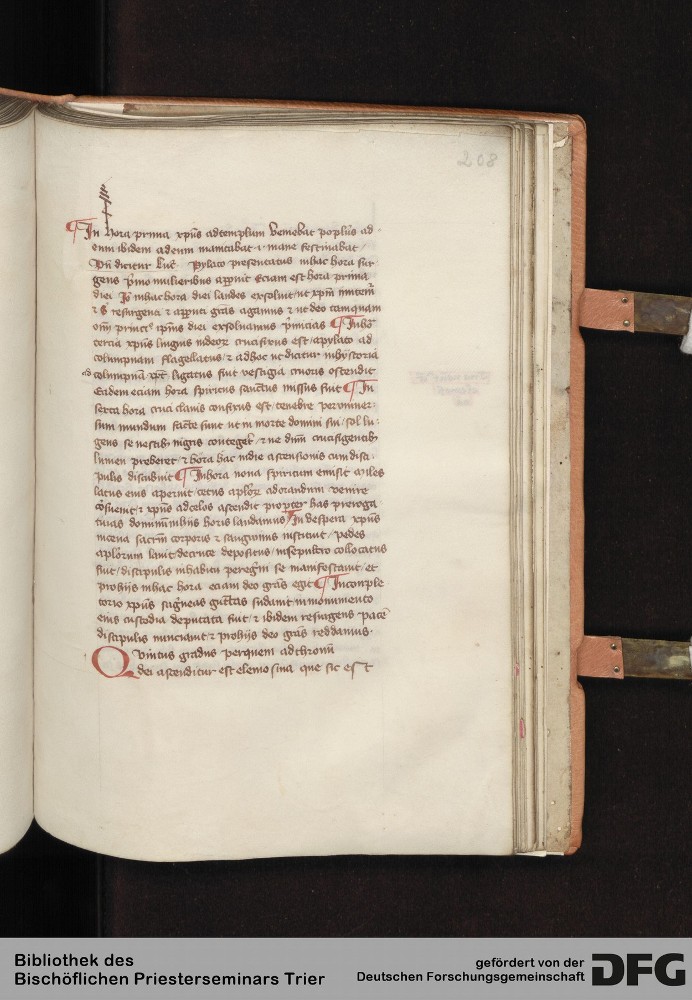 208
In hora prima xpūs ad templum veniebat popl̄us ad
eum ibidem ad eum manicabat .i. mane festinabat /
Vn̄ dicitur luc̄ Pylato presentatus in hac hora sur
gens p̄mo mulieribus apparuit Eciam est hora prima
diei Iō in hac hora diei laudes exsoluit / ut xpm̄
resurgenti & app̄nti grās agamus & ut deo tamquam
om̄i principi ip̄ius diei exsoluamus p̄micias In hō
tercia xpūs linguis iudeoꝝ crucifixus est / a pylato ad
columpnam flagellatus / & ad hoc ut dicitur in hystoria
columpna xp̄c ligatus fuit vestigia cruoris ostendit
Eadem eciam hora spiritus sanctus missus fuit In
sexta hora cruci clauis confixus est / tenebre per vniuer
sum mundum facte sunt ut in morte domini sui / sol lu
gens se vestib; nigris contegeret / & ne dn̄m crucifigentib;
lumen preberet / & hora hac in die ascensionis cum disci
pulis discubuit In hora nona spiritum emisit miles
latus eius aperuit cetus apl̄oꝝ ad orandum venire
cōsueuit / & xpūs ad celos ascendit propter has preroga
tiuas dominum in hijs horis laudamus In vespera xpūs
in cena sacrm̄ corporis & sanguinis instituit / pedes
apl̄orum lauit / de cruce depositus / in sepulcro collocatus
fuit / discipulis in habitu peregⁱni se manifestauit / et
pro hijs in hac hora eciam deo grās egit In comple
torio xpūs sāgneas guttas sudauit in monumento
eius custodia deputata fuit / & ibidem resurgens pacē
discipulis nunciauit / & pro hijs deo grās reddamus.
Quintus gradus per quem ad thronū
dei ascenditur est elemosina que sic est
Bibliothek des
Bischöflichen Priesterseminars Trier
gefördert von der
Deutschen Forschungsgemeinschaft
DFG